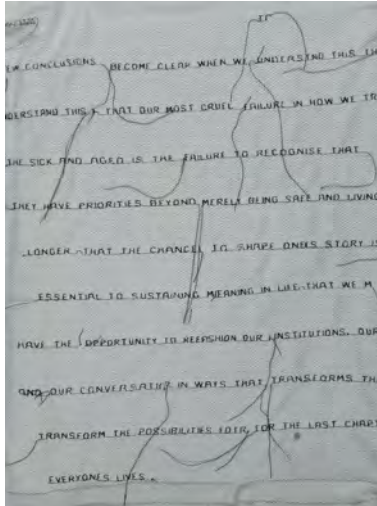 IF
EW CONCLUSIONS BECOME CLEAR WHEN WE UNDERSTND THIS TH
DERSTAND THIS THAT OUR MOST CRUEL FAILURE IN HOW WE TR
THE SICK AND AGED IS THE FAILURE TO RECOGNISE THAT
THEY HAVE PRIORITIES BEYOND MERELY BEING SAFE AND LIVING
LONGER THAT THE CHANCE TO SHAPE ONES STORY IS
ESSENTIAL TO SUSTAINING MEANING IN LIFE THAT WE M
HAVE THE OPPORTUNITY TO REFASHION OUR INSTITUTIONS, OUR
AND OUR CONVERSATION IN WAYS THAT TRANSFORMS TH
TRANSFORM THE POSSIBILITIES FOR THE LAST CHAPT
EVERYONES LIVES.